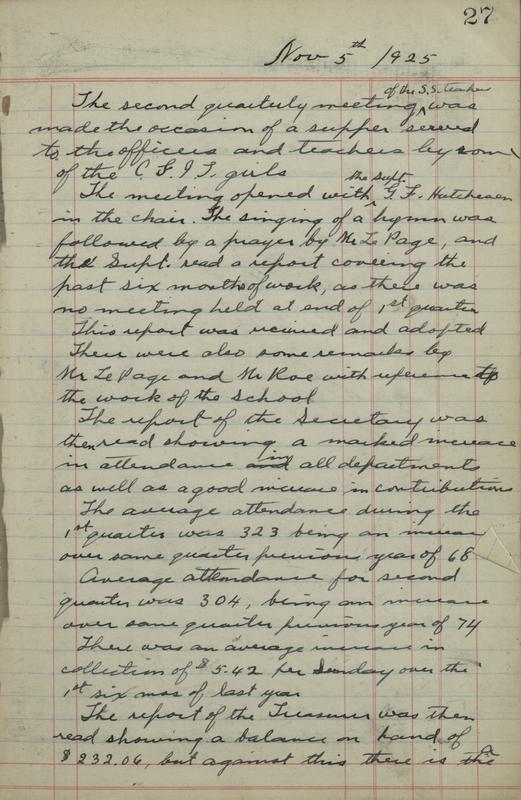 27
Nov 5th 1925
of the S.S. teacher
The second quarterly meeting ^ was
made the occasion of a supper served
to the officers and teachers by some
of the C. G. I. T. girls
the Supt.
The meeting opened with ^ G. F. Hutcheson
in the chair. The singing of a hymn was
followed by a prayer by Mr Le Page, and
the Supt. read a report covering the
past six months of work, as there was
no meeting held at end of 1st quarter
This report was received and adopted
There were also some remarks by
Mr Le Page and Mr Roe with reference to
the work of the school
The report of the Secretary was
then read showing a marked increase
in attendance and in all departments
as well as a good increase in contributions
The average attendance during the
1st quarter was 323 being an increase
over same quarter previous year of 68
Average attendance for second
quarter was 304, being an increase
over same quarter previous year of 74
There was an average increase in
collection of $5.42 per Sunday over the
1st six mos of last year
The report of the Treasurer was then
read showing a balance on hand of
$232.06, but against this there is the